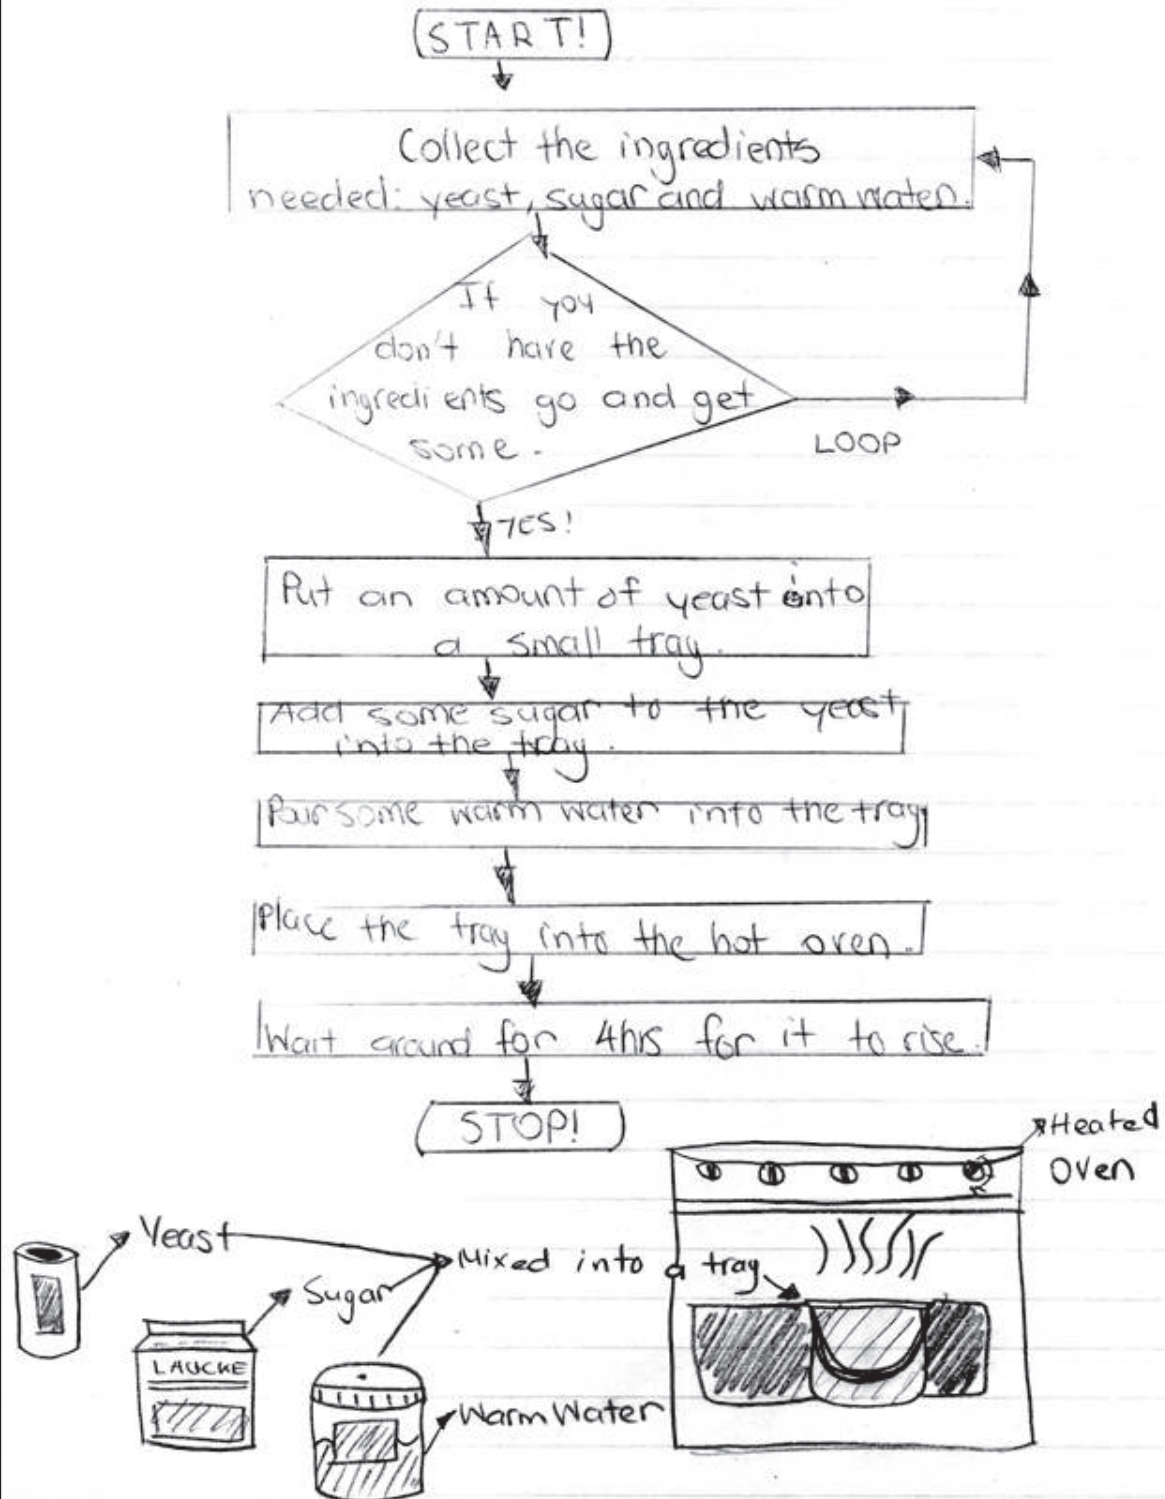 START!
Collect the ingredients
needed: yeast, sugar and warm water.
If you
don't have the
ingredients go and get
some.
LOOP
YES!
Put an amount of yeast onto
a small tray.
Add some sugar to the yeast
into the tray.
Pour some warm water into the tray
Place the tray into the hot oven.
Wait around for 4hrs for it to rise.
STOP!
Heated
Oven
Yeast
Mixed into a tray
Sugar
LAUCKE
Warm Water